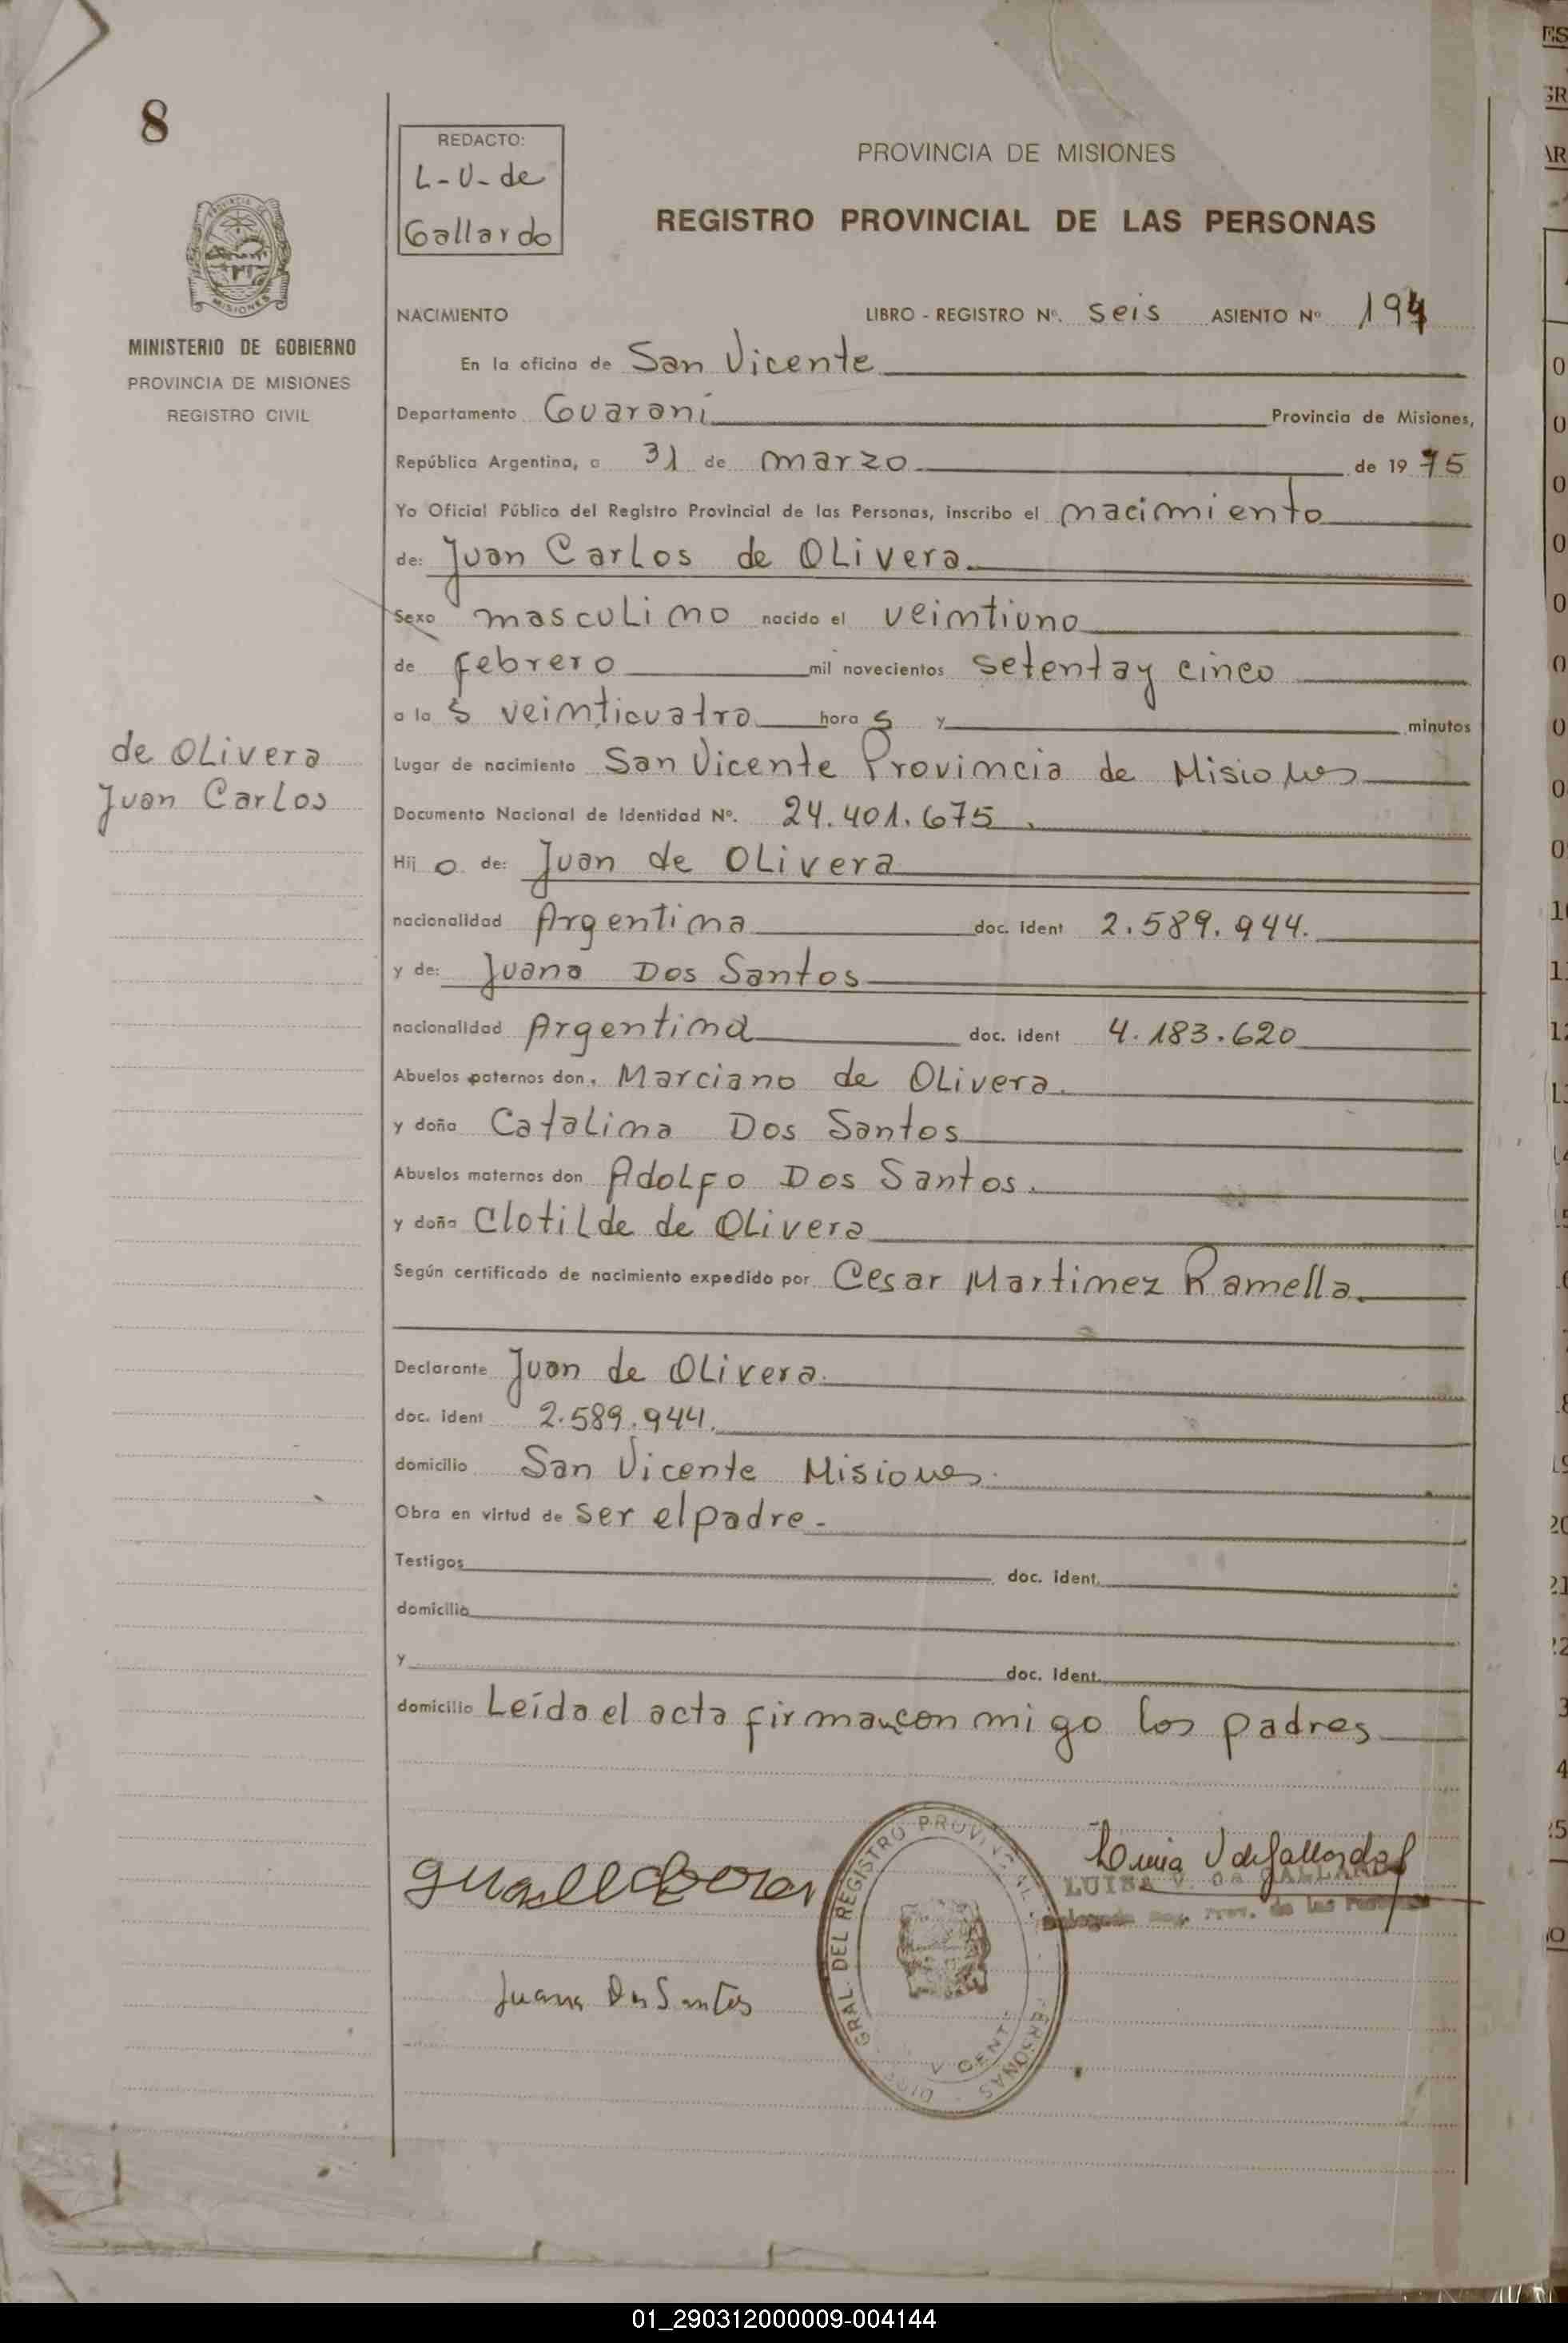 8
REDACTO:
L-V-de
Gallardo
PROVINCIA DE MISIONES
REGISTRO PROVINCIAL DE LAS PERSONAS
MISIONES
MINISTERIO DE GOBIERNO
PROVINCIA DE MISIONES
REGISTRO CIVIL
NACIMIENTO LIBRO - REGISTRO Nº. seis ASIENTO Nº 194
En la oficina de San Vicente
Departamento Guaraní Provincia de Misiones,
República Argentina, a 31 de marzo de 1975
Yo Oficial Público del Registro Provincial de las Personas, inscribo el nacimiento
de: Juan Carlos de Olivera.
Sexo masculino nacido el veintiuno
de febrero mil novecientos setenta y cinco
a la s veinticuatro hora s y minutos
de Olivera
Juan Carlos
Lugar de nacimiento San Vicente Provincia de Misiones
Documento Nacional de Identidad Nº. 24.401.675.
Hij o de: Juan de Olivera
nacionalidad Argentina doc. ident 2.589.944.
y de: Juana Dos Santos
nacionalidad Argentina doc. ident 4.183.620
Abuelos paternos don. Marciano de Olivera.
y doña Catalina Dos Santos
Abuelos maternos don Adolfo Dos Santos.
y doña Clotilde de Olivera
Según certificado de nacimiento expedido por Cesar Martinez Ramella.
Declarante Juan de Olivera.
doc. ident 2.589.944.
domicilio San Vicente Misiones.
Obra en virtud de ser el padre-
Testigos doc. ident.
domicilio
y doc. ident.
domicilio Leída el acta firman con migo los padres
Juana Dos Santos
LUISA V. DE GALLARDO
GRAL. DEL REGISTRO PROVINCIAL PERSONAS
01_290312000009-004144